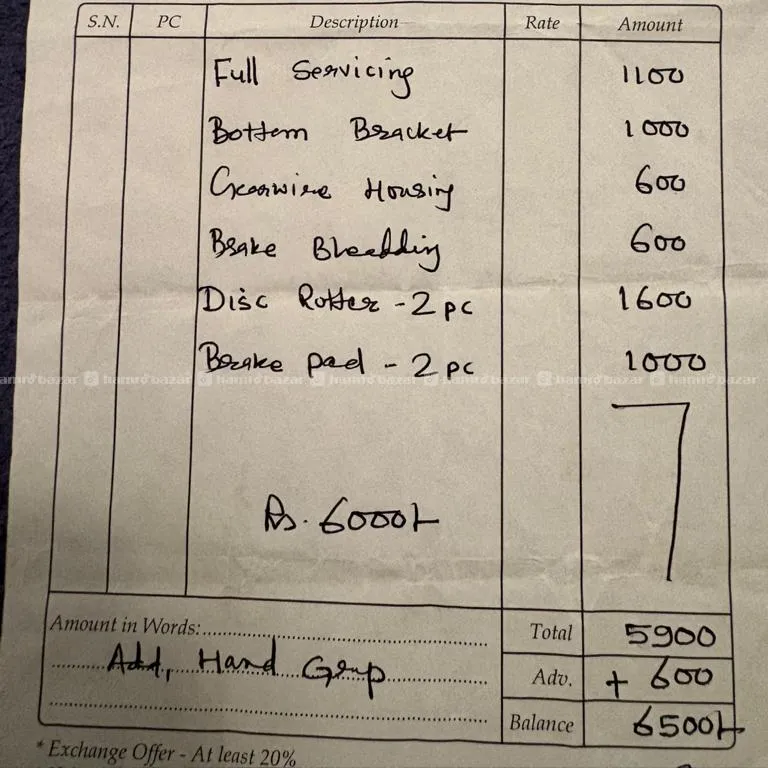 S.N. PC Description Rate Amount
Full Servicing 1100
Bottom Bracket 1000
Gearwire Housing 600
Brake Bleadding 600
Disc Rotter - 2 pc 1600
Brake pad - 2 pc 1000
hamrobazar hamrobazar hamrobazar hamrobazar hamrobazar hamrobazar hamrobazar
Rs. 6000/-
Amount in Words: Total 5900
Add, Hand Grip Adv. + 600
Balance 6500/-
* Exchange Offer - At least 20%